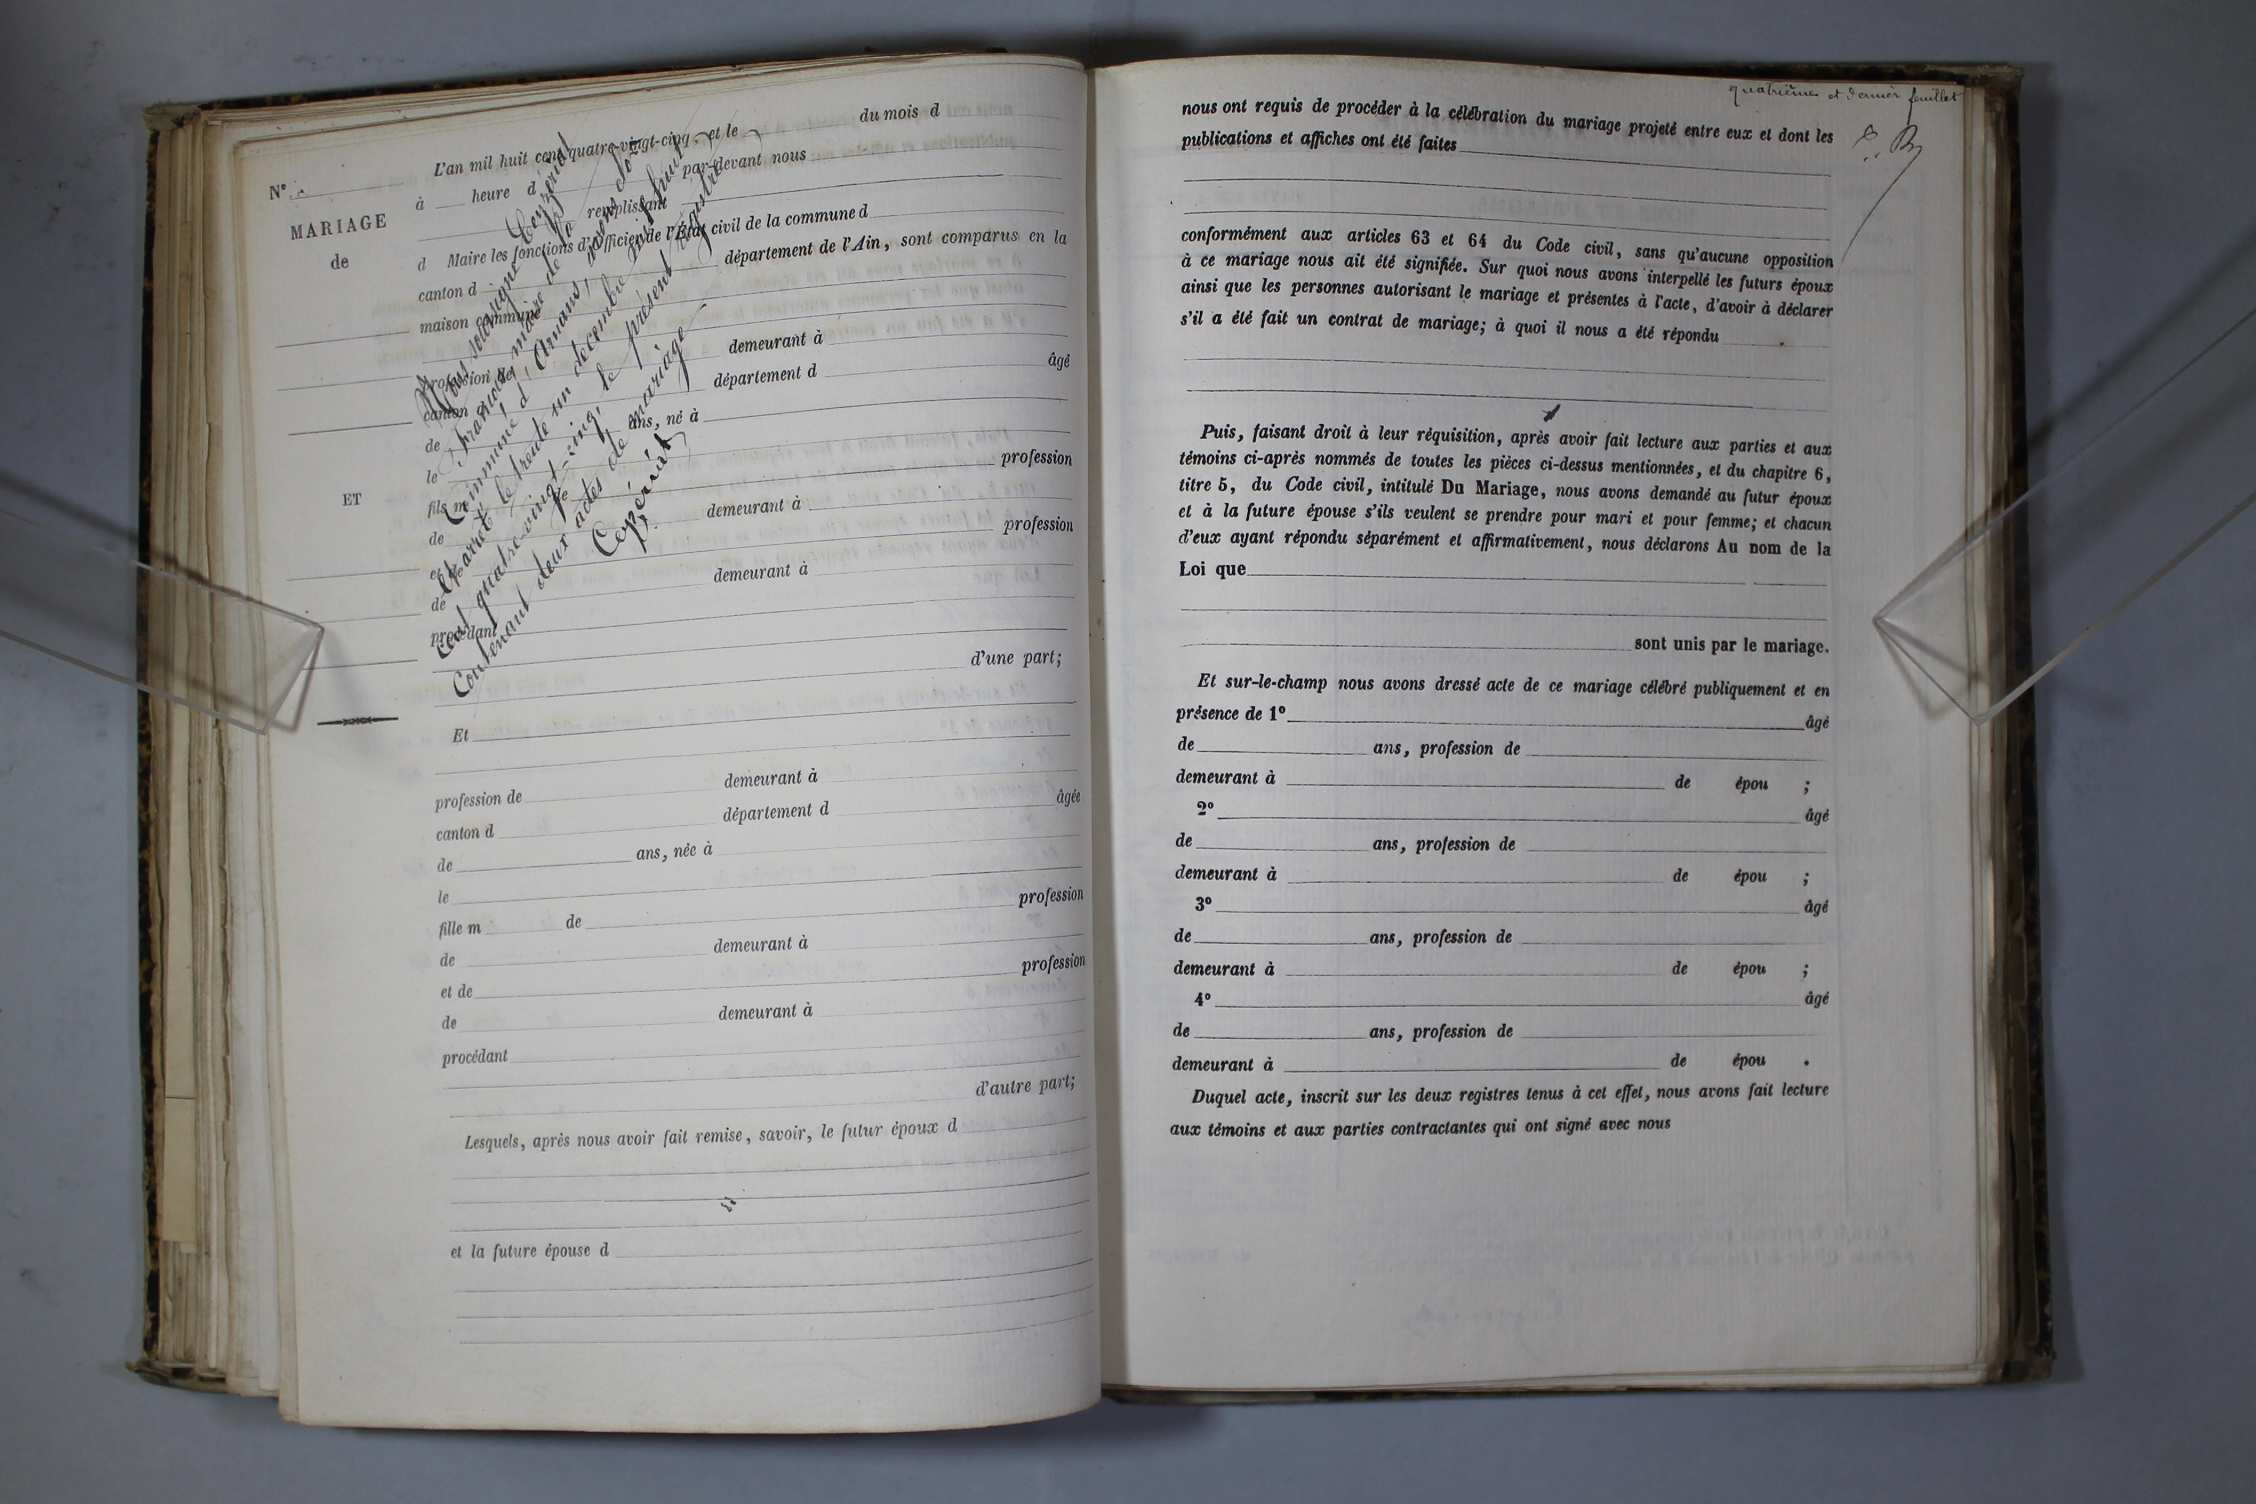 N°
MARIAGE
de
ET
L'an mil huit cent quatre-vingt-cinq, et le du mois d
à heure d par-devant nous
remplissant
d Maire les fonctions d'Officier de l'État civil de la commune d
canton d département de l'Ain, sont comparus en la
maison commune
profession de demeurant à
canton d département d âgé
de ans, né à
le
fils m de profession
de demeurant à
et de profession
de demeurant à
procédant
d'une part;
Nous soussigné Ceyzériat
François, maire de la
Commune d'Arnans, avons clos
et arrêté le trente un décembre mil huit
cent quatre-vingt-cinq, le présent registre
Contenant deux actes de mariage
Ceyzériat
Et
profession de demeurant à
canton d département d âgée
de ans, née à
le
fille m de profession
de demeurant à
et de profession
de demeurant à
procédant
d'autre part;
Lesquels, après nous avoir fait remise, savoir, le futur époux d
et la future épouse d
quatrième et dernier feuillet
nous ont requis de procéder à la célébration du mariage projeté entre eux et dont les
publications et affiches ont été faites
conformément aux articles 63 et 64 du Code civil, sans qu'aucune opposition
à ce mariage nous ait été signifiée. Sur quoi nous avons interpellé les futurs époux
ainsi que les personnes autorisant le mariage et présentes à l'acte, d'avoir à déclarer
s'il a été fait un contrat de mariage; à quoi il nous a été répondu
Puis, faisant droit à leur réquisition, après avoir fait lecture aux parties et aux
témoins ci-après nommés de toutes les pièces ci-dessus mentionnées, et du chapitre 6,
titre 5, du Code civil, intitulé Du Mariage, nous avons demandé au futur époux
et à la future épouse s'ils veulent se prendre pour mari et pour femme; et chacun
d'eux ayant répondu séparément et affirmativement, nous déclarons Au nom de la
Loi que
sont unis par le mariage.
Et sur-le-champ nous avons dressé acte de ce mariage célébré publiquement et en
présence de 1° âgé
de ans, profession de
demeurant à de épou ;
2° âgé
de ans, profession de
demeurant à de épou ;
3° âgé
de ans, profession de
demeurant à de épou ;
4° âgé
de ans, profession de
demeurant à de épou .
Duquel acte, inscrit sur les deux registres tenus à cet effet, nous avons fait lecture
aux témoins et aux parties contractantes qui ont signé avec nous